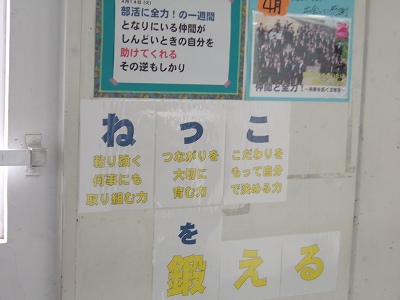 4月14日(火)
部活に全力！の一週間
となりにいる仲間が
しんどいときの自分を
助けてくれる
その逆もしかり
4月
仲間と全力！
ね
粘り強く
何事にも
取り組む力
っ
つながりを
大切に
育む力
こ
こだわりを
もって自分
で決める力
を
鍛える